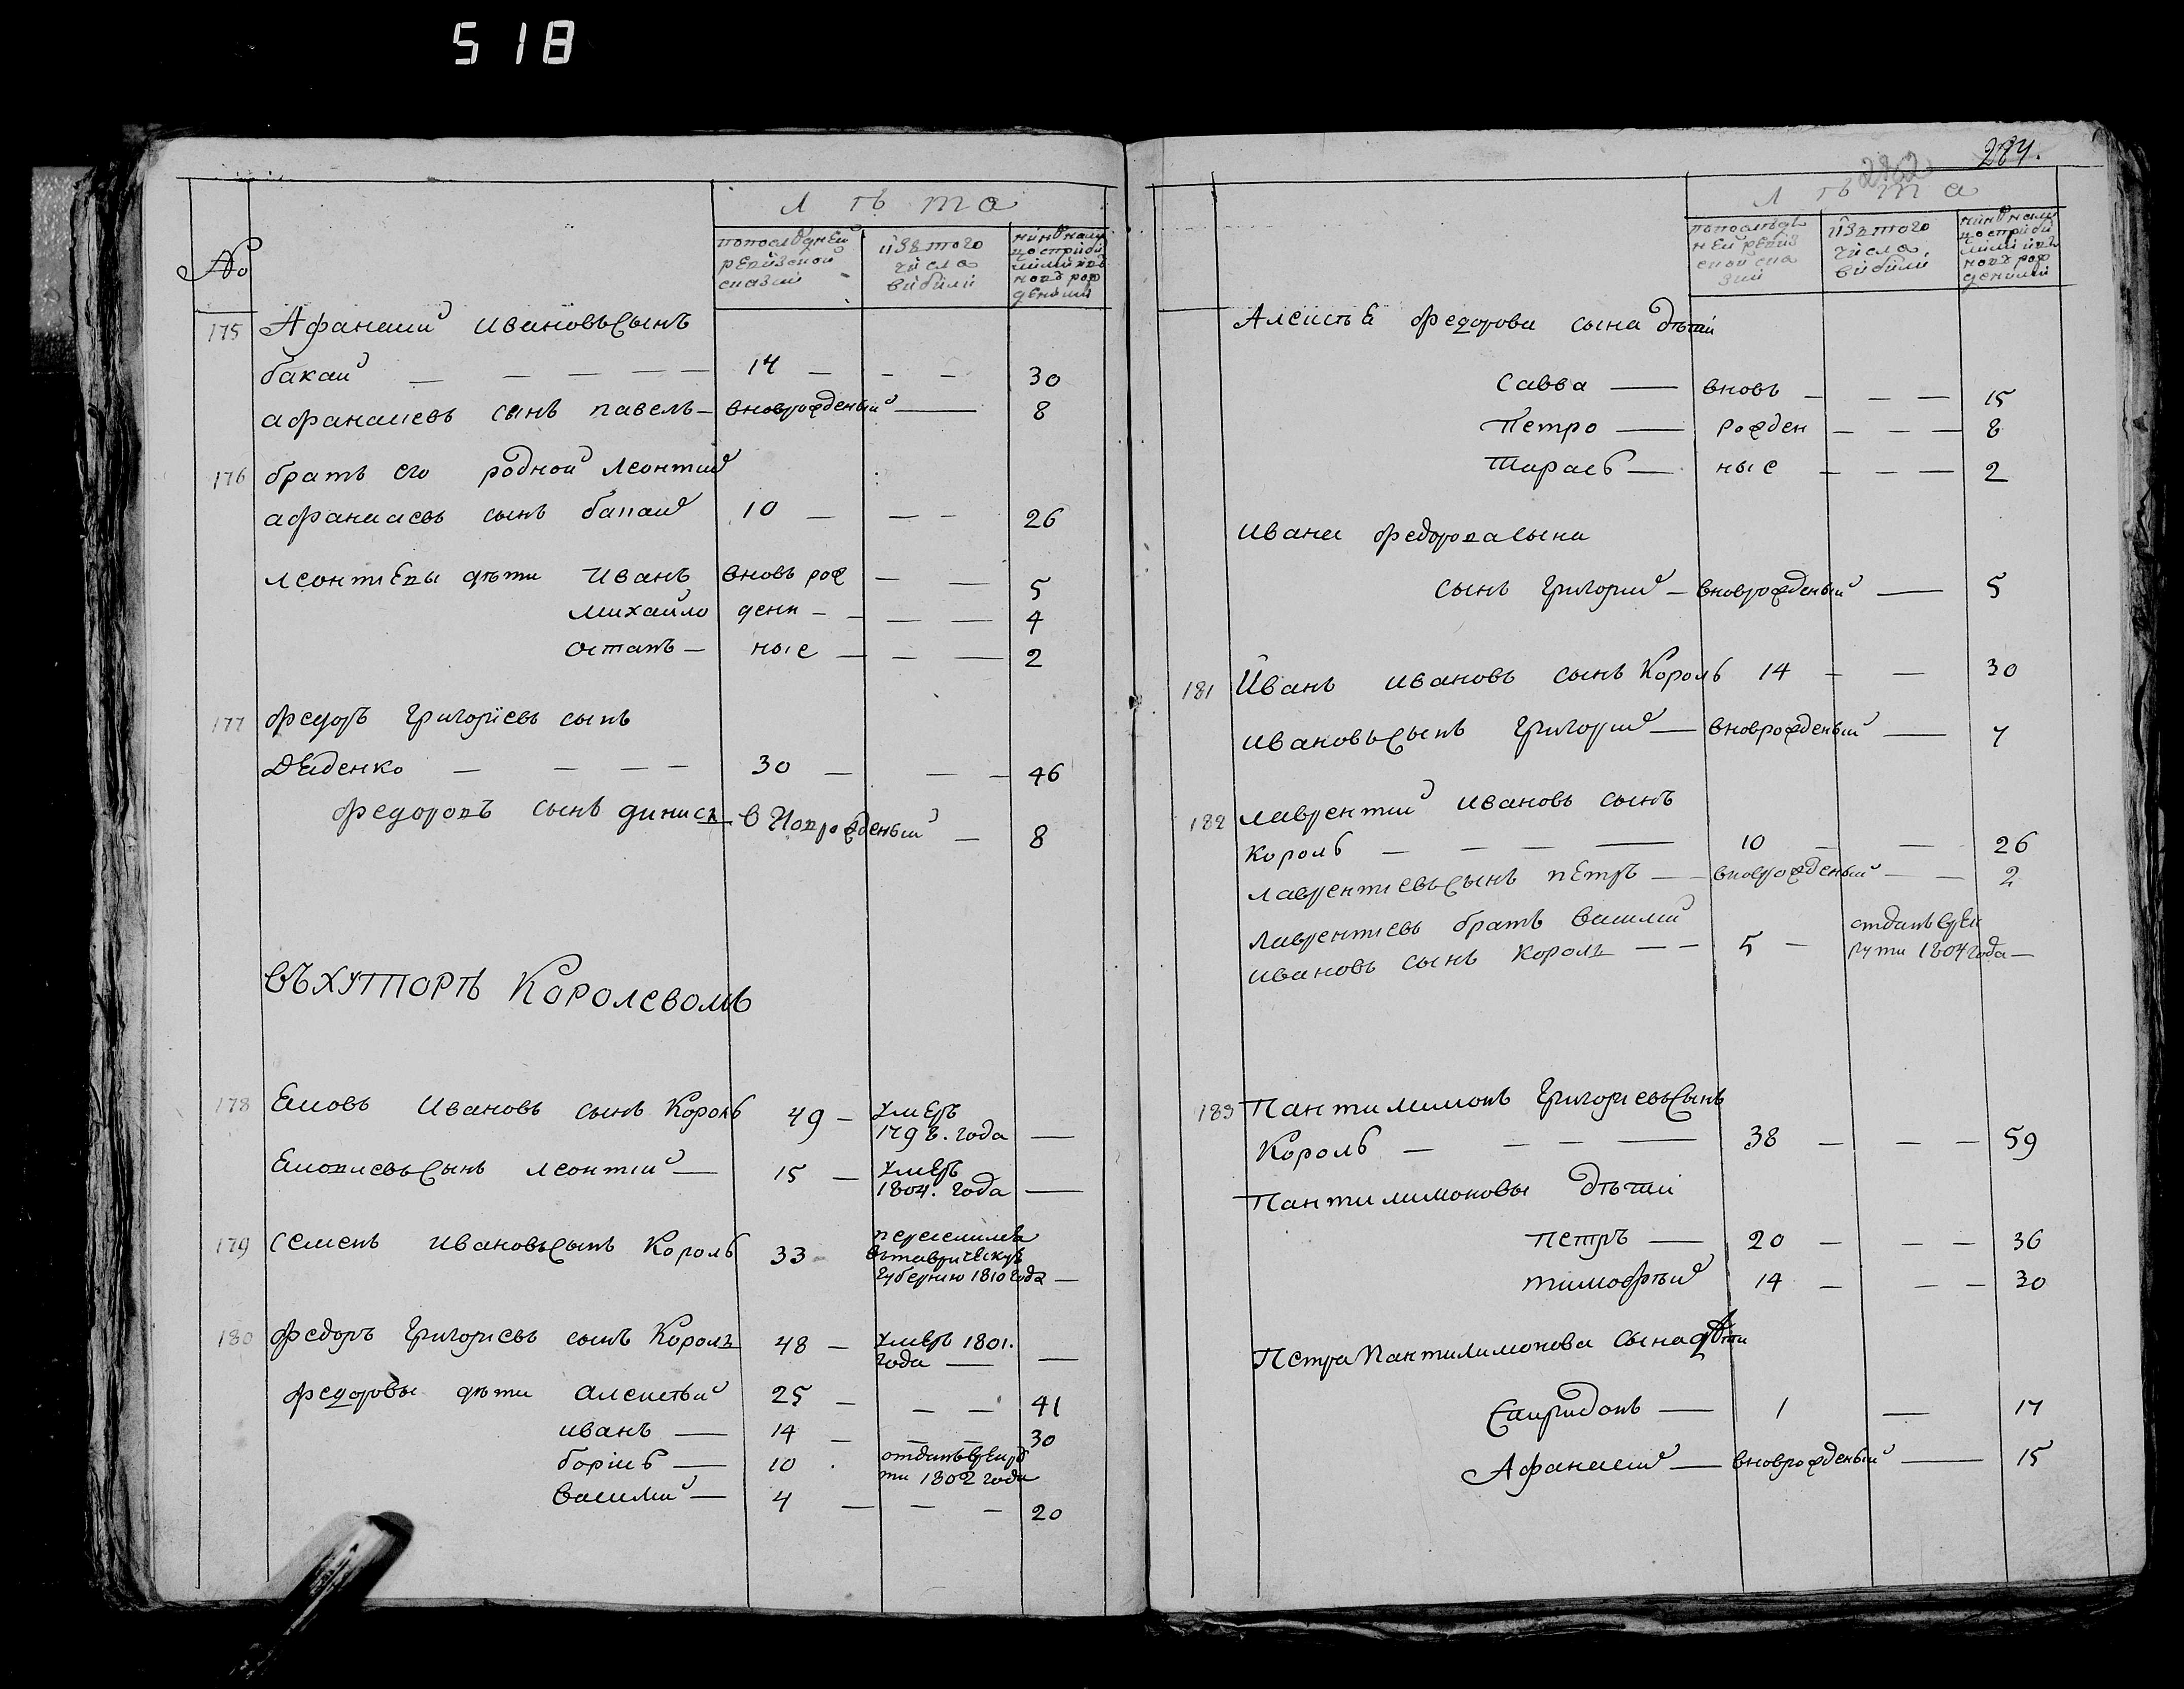 518
№
лѣта
попослѣдней ревизской сказки
изътого числа выбыли
175 Афанасий ивановъ сынъ
бакай — — — — — 14 — — — 30
афанасиевъ сынъ павелъ — вноврожденый — 8
176 братъ его родной леонтий
афанасиевъ сынъ бакай 10 — — — 26
леонтиевы дѣти иванъ вновь рож — — 5
михайло денн — — — — 4
остапъ — ные — — — 2
177 федоръ григорїевъ сынъ
Деденко — — — — 30 — — — 46
федоровъ сынъ динисъ — вновроѣденый — 8
въ хуторѣ Королевомъ
178 Яковъ Ивановъ сынъ Король 49 — умеръ
1798. года —
Яковлевъ сынъ леонтий — 15 — умеръ
1804. года —
179 семенъ ивановъ сынъ Король 33 переселился
въ таврическую
губернию 1810 года —
180 федоръ григориевъ сынъ Король 48 — умеръ 1801.
года — —
федоровы дѣти алексѣй 25 — — — 41
иванъ — 14 — — — 30
борисъ — 10 . отданъ в рекру
ти 1802 года
василий — 4 — — — 20
284.
282
лѣта
попослѣд
ней ревиз
ской ска
зки
изътого
числа
выбыли
Алексѣя федорова сына дѣтий
савва — вновъ — — — 15
петро — рожден — — — 8
тарасъ — ные — — — 2
ивана федорова сына
сынъ григорий — вноврожденый — 5
181 Иванъ ивановъ сынъ Король 14 — — 30
ивановъ сынъ григорий — вноврожденый — 7
182 лаврентий ивановъ сынъ
король — — — — 10 — — 26
лаврентиевъ сынъ петръ — вноврожденый — — 2
лаврентиевъ братъ василий отданъ в рек
ивановъ сынъ король — — 5 — рути 1804 года —
183 пантилимонъ григориевъ сынъ
король — — — — 38 — — — 59
пантилимоновы дѣтий
петръ — 20 — — — 36
тимофѣй 14 — — — 30
петра пантилимонова сына дѣти
спиридонъ — 1 — 17
Афанасий — вноврожденый — 15